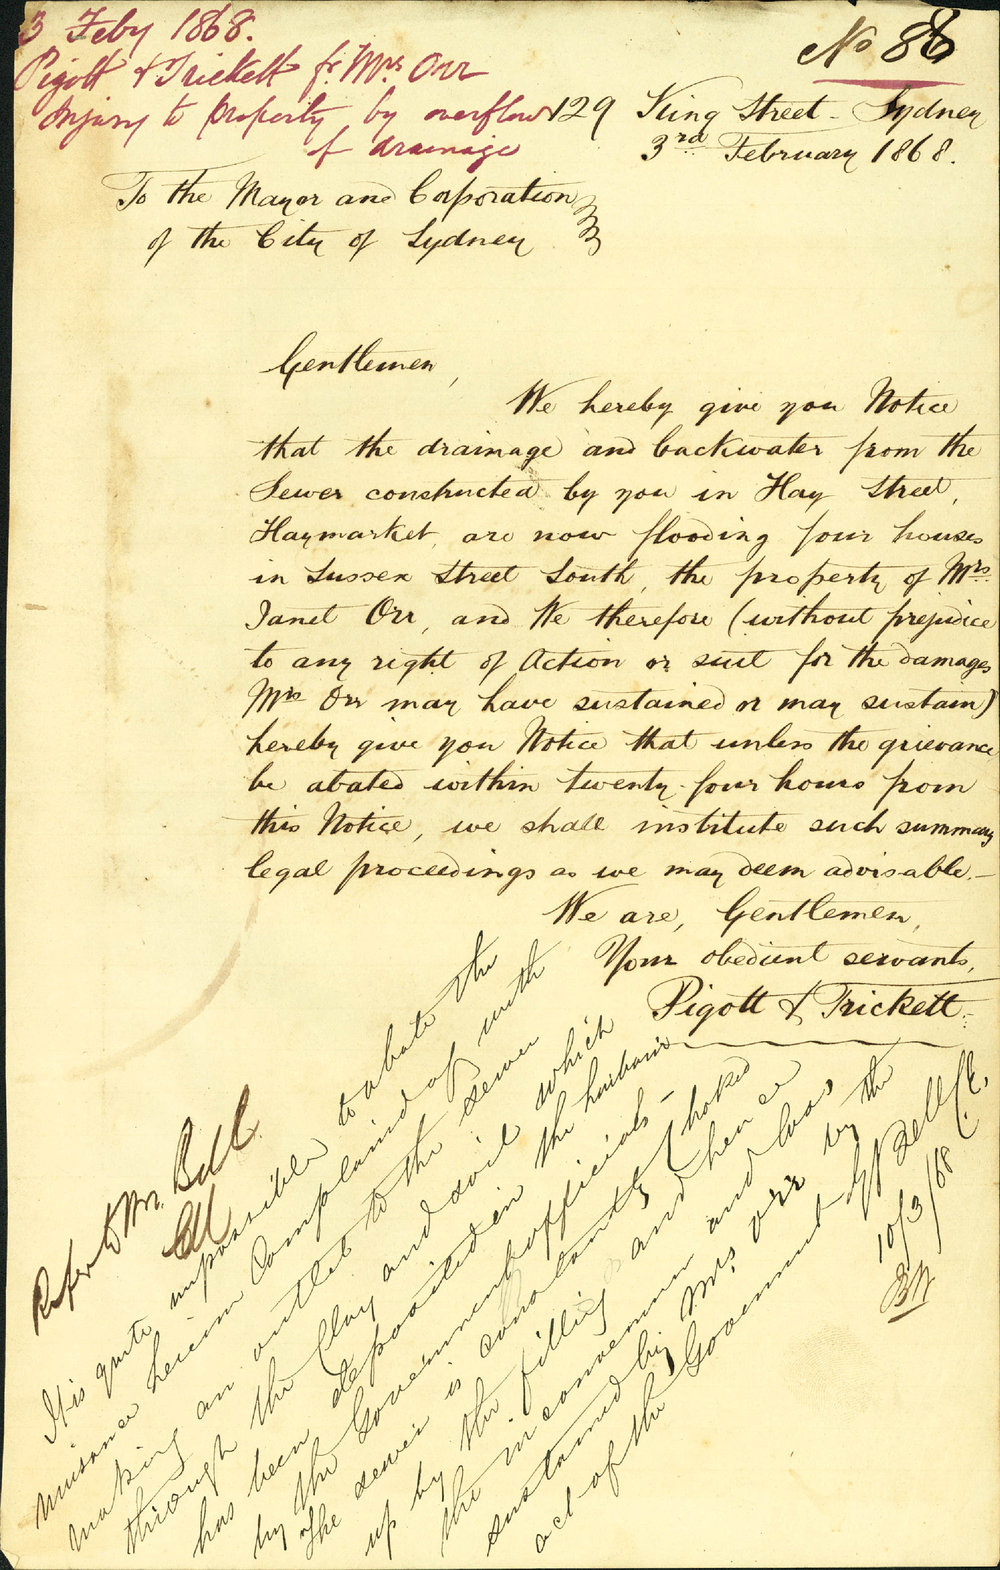 3 Feby 1868.
Pigott & Trickett fr. Mrs Orr
Injury to property by overflow
of drainage
No 88
129 King Street - Sydney
3rd February 1868.
To the Mayor and Corporation
of the City of Sydney
Gentlemen,
We hereby give you Notice
that the drainage and backwater from the
Sewer constructed by you in Hay Street,
Haymarket, are now flooding four houses
in Sussex Street South, the property of Mrs.
Janet Orr, and We therefore (without prejudice
to any right of Action or suit for the damages
Mrs Orr may have sustained or may sustain)
hereby give you Notice that unless the grievance
be abated within twenty-four hours from
this Notice, we shall institute such summary
legal proceedings as we may deem advisable.-
We are, Gentlemen,
Your obedient servants,
Pigott & Trickett.
Refer to Mr. Bell
It is quite impossible to abate the
nuisance herein Complained of with
making an outlet to the sewer
through the Clay and soil which
has been deposited in the harbour
by the Government officials -
The sewer is constantly Choked
up by the filling and hence
the inconvenience and loss
sustained by Mrs Orr by the
act of the Government
Bell C.E.
10/3/68